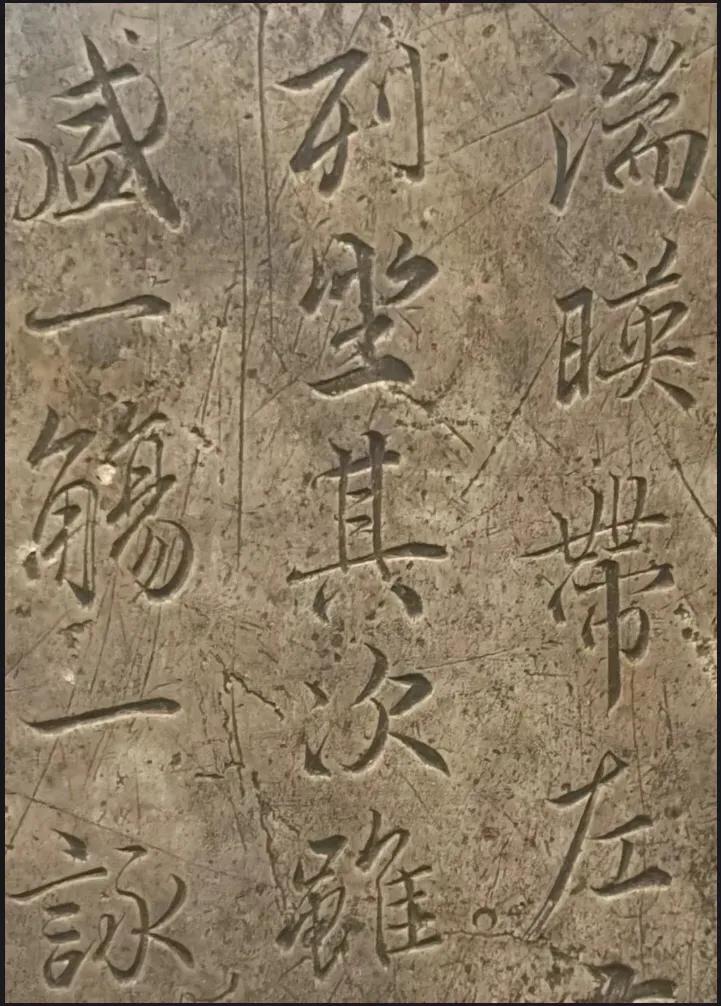 湍暎帶左
列坐其次雖
盛一觴一詠